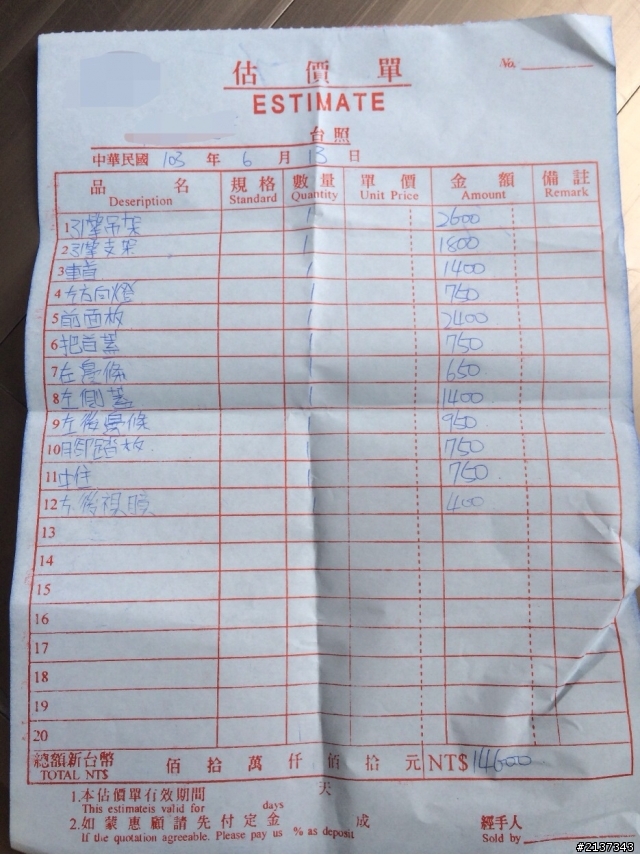 估價單
No.
ESTIMATE
台照
中華民國 103 年 6 月 13 日
品名 規格 數量 單價 金額 備註
Deseription Standard Quantity Unit Price Amount Remark
1 引擎吊架 1 2600
2 引擎支架 1 1800
3 車首 1 1400
4 左方向燈 1 750
5 前面板 1 2400
6 把首蓋 1 750
7 左邊條 1 650
8 左側蓋 1 1400
9 左後邊條 1 950
10 腳踏板 1 750
11 中柱 1 750
12 左後視鏡 400
13
14
15
16
17
18
19
20
總額新台幣 佰拾萬仟佰拾元 NT$ 14600
TOTAL NT$
1.本估價單有效期間 天
This estimateis valid for days
2.如蒙惠顧請先付定金 成 經手人
If the quotation agreeable. Please pay us % as deposit Sold by
#2137343